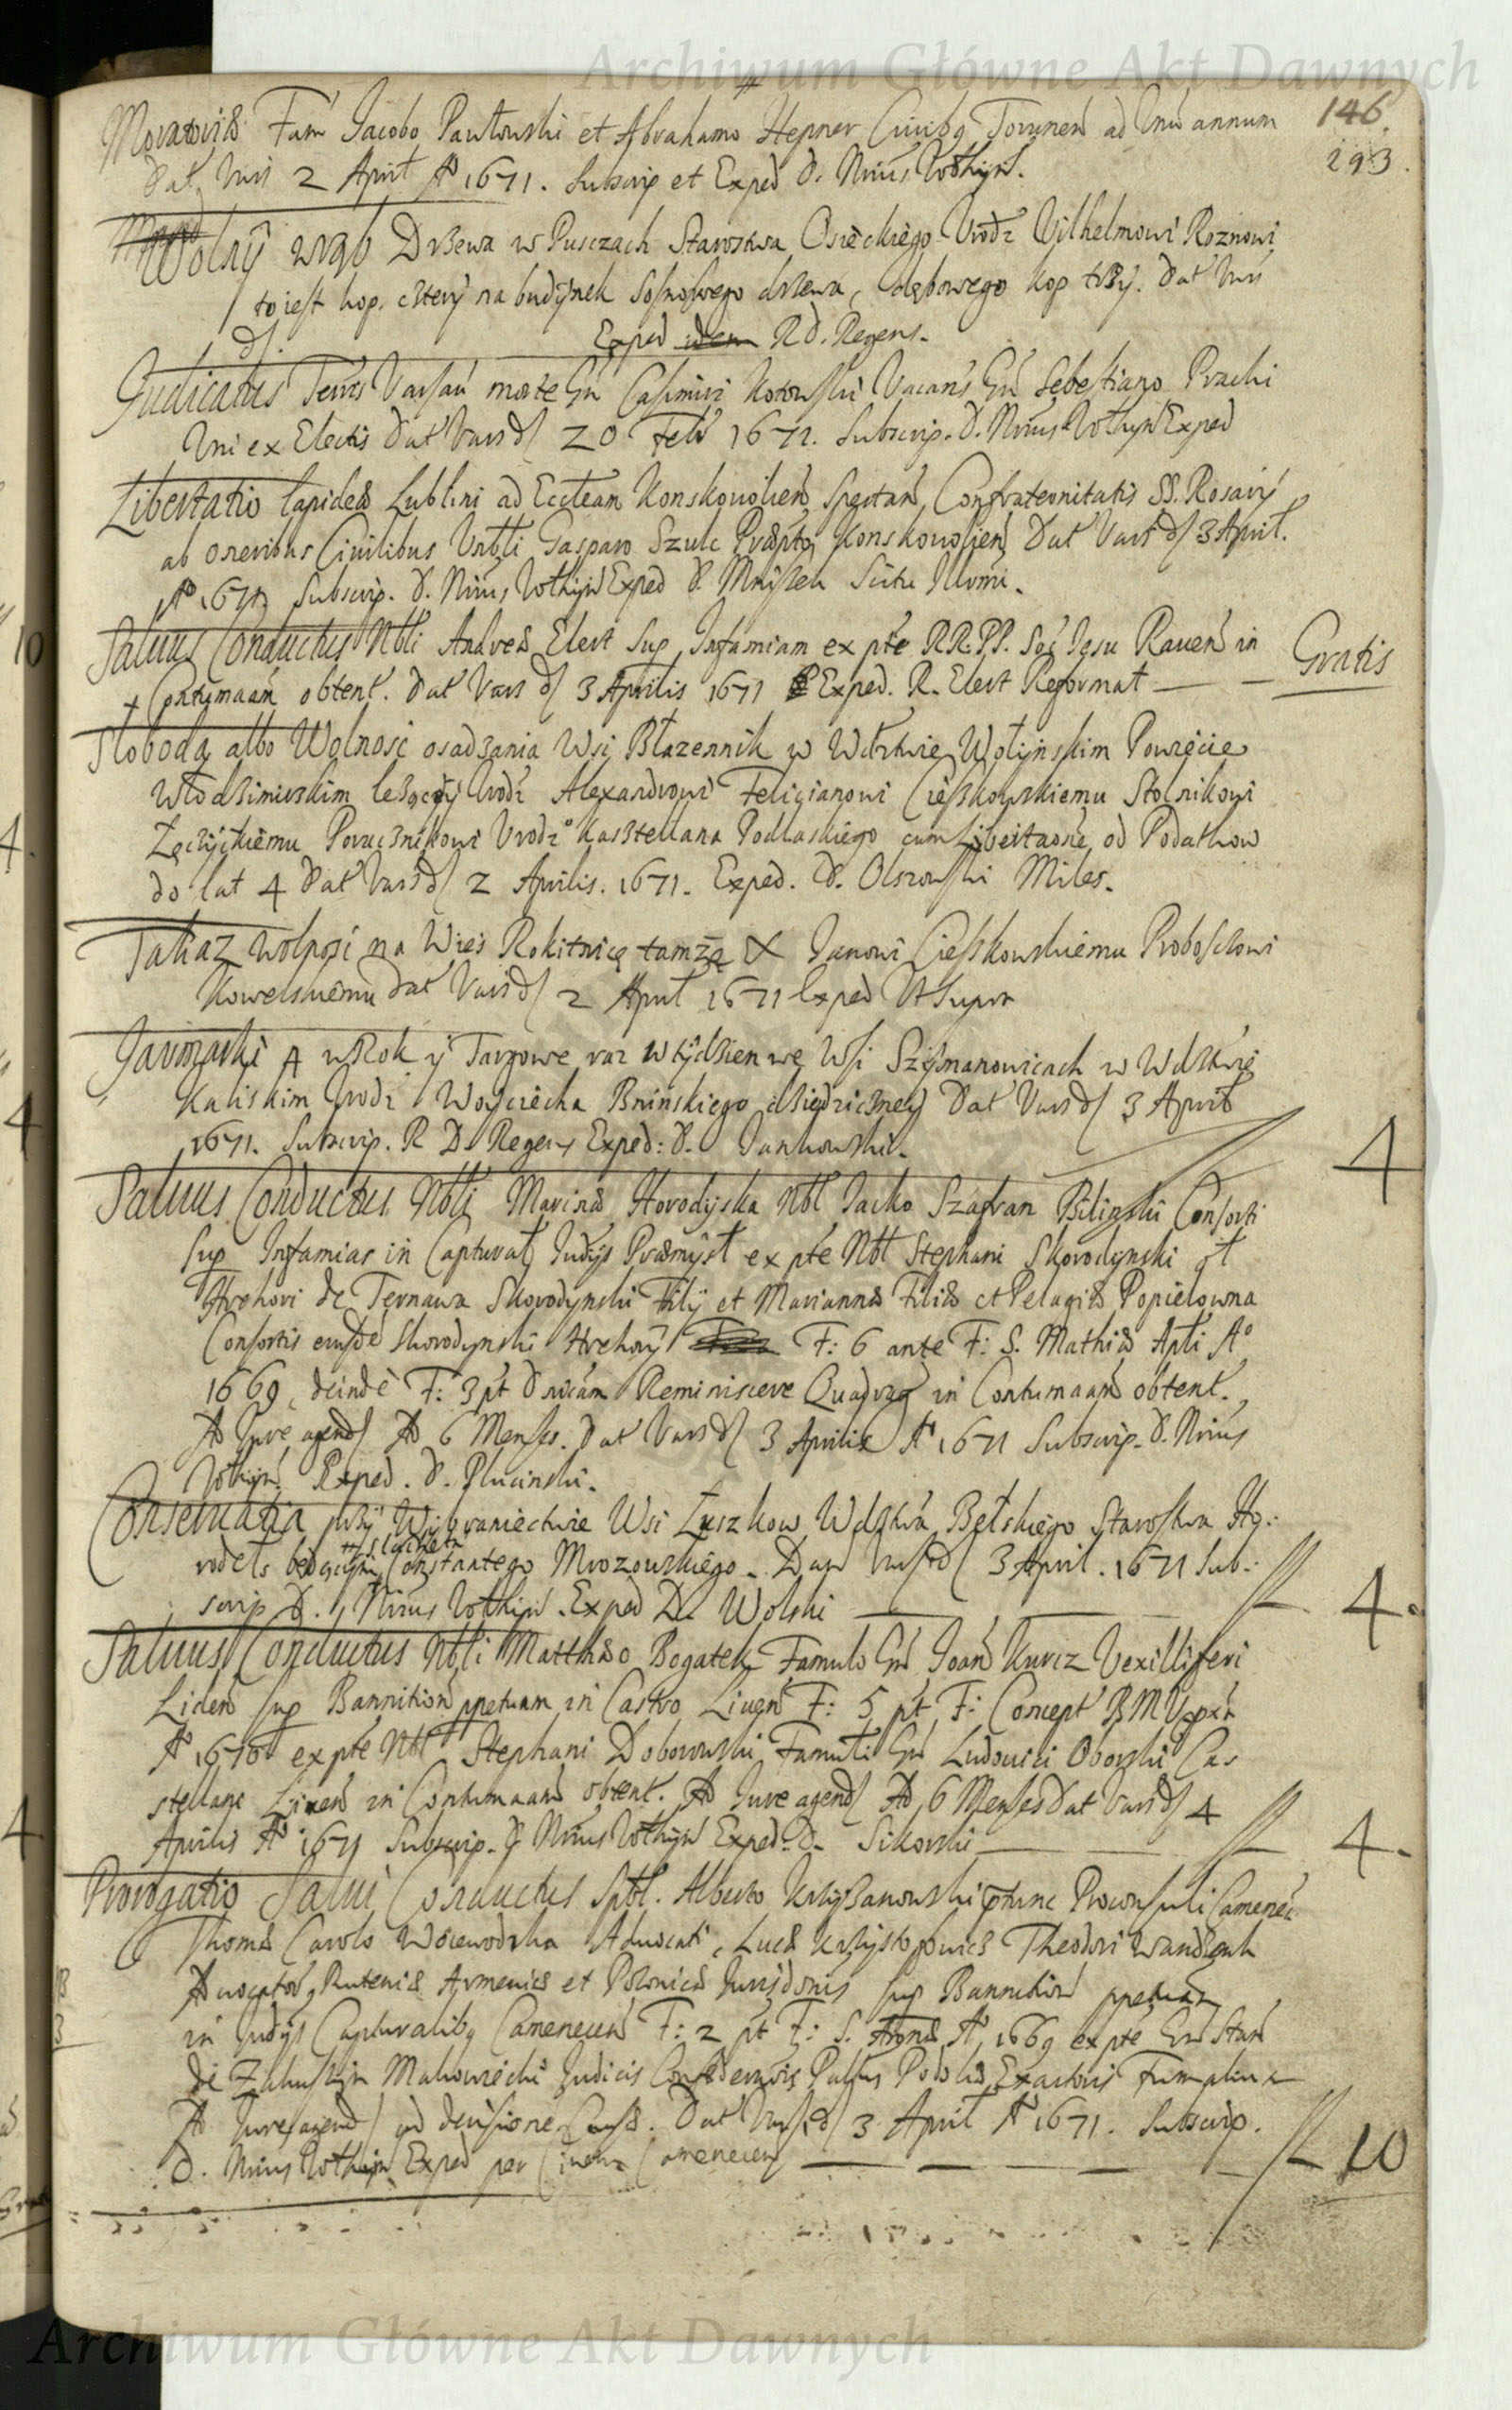 Archiwum Główne Akt Dawnych
146.
293.
Moratoriū Fam Jacobo Pawłowski et Abrahamo Hepner Civibq Torunen ad Unū annum
Dat Vars 2 April Aº 1671. Subscrip et Exped D. Nrius Vołhyn.
Wolny wrąb Drzewa w Pusczach Starostwa Osieckiego Urodz Vilhelmowi Roznowi
to iest kop. cztery na budynek Sosnowego drzewa, dębowego kop trzy. Dat Vars
d. Exped R D. Regens.
Judicatus Terris Varsav morte Gn Casimiri Kotowski Vacans Gn Sebestiano Prachi
Uni ex Electis Dat Vars d 20 Feb 1671. Subscrip. D. Nrius Vołhyn Exped
Libertatio lapidea Lublini ad Eccleam Konskovolien Spectan Confraternitatis SS. Rosarij
ab oneribus Civilibus Vnbli Gasparo Szulc Præpto Konskovolien Dat Vars d 3 April.
Aº 1671 Subscrip. D. Nrius Vołhyn Exped D. Mniszek Scitu Illvmi.
Salvus Conductus Nbli Andreæ Elert Sup Infamiam ex pte RR.PP. Soc Jesu Raven in
Contumaam obtent. Dat Vars d 3 Aprilis 1671 Exped. R. Elert Reformat — — Gratis
Słoboda albo Wolnosc osadzania Wsi Błazennik w Wdztwie Wołynskim Powiecie
Włodzimirskim lezącey Urodz Alexandrowi Felicianowi Cieszkowskiemu Stolnikowi
Łęczyckiemu Porucznikowi Urodzº Kasztellana Podlaskiego cum Libertaone od Podatkow
do lat 4 Dat Vars d 2 Aprilis. 1671. Exped. D. Olszowski Miles.
Takaz wolnosc na Wies Rokitnicę tamze X Janowi Cieszkowskiemu Proboszczowi
Kowelskiemu Dat Vars d 2 April 1671 Exped Ut Supra
Jarmarki 4 w Rok y Targowe raz w tydzien we Wsi Szymanowicach w Wdztwie
Kaliskim Urodz Woyciecha Bninskiego dziedziczney Dat Vars d 3 April
1671. Subscrip. R D Regens Exped: D. Jankowski. 4
Salvus Conductus Nbli Marinæ Horodyska Nbl Jacko Szafran Bilinski Consorti
Sup Infamias in Capturat Judijs Præmysl ex pte Nbl Stephani Skorodynski et
Hrehori de Ternawa Skorodynski Filij et Mariannæ Filiæ et Pelagiæ Popielowna
Consortis eiusde Skorodynski Hrehory F: 6 ante F: S. Mathiæ Apli Aº
1669, deinde F: 3 pt Dnicam Reminiscere Quadrag in Contumaam obtent.
Ad Jure agend Ad 6 Menses. Dat Vars d 3 Aprilis Aº 1671 Subscrip. D. Nrius
Vołhyn. Exped. D. Plucinski.
Conservatia przy Wybraniectwie Wsi Łuszkow Wdztwa Bełskiego Starostwa Ho:
rodels będącym Szlachetn Constantego Mrozowskiego. Dan Vars d 3 April. 1671 Sub:
scrip D. Nrius Vołhyn. Exped D. Wolski — — 4.
Salvus Conductus Nbli Matthæo Bogatek Famulo Gn Joan Kurcz Vexilliferi
Liden Sup Bannition ppetuam in Castro Liven F: 5 pt F: Concept BMV pxt
Aº 1670 ex pte Nbl Stephani Dobowski Famuli Gn Ludovici Oborski Cas
stellani Liven in Contumaam obtent. Ad Jure agend Ad 6 Menses Dat Vars d 4
Aprilis Aº 1671 Subscrip. D Nrius Vołhyn Exped. D. Sikorski — — 4.
Prorogatio Salvi Conductus Spbl. Alberto Krzyzanowski ptunc Proconsuli Camenec
Thomæ Carolo Woiewodzka Advocati, Lucæ Krzysztofowicz Theodori
Advocator Ruteniæ Armenicæ et Polonicæ Jurisdonis Sup Bannition ppetuam
in Judijs Capturalibq Camenecen F: 2 pt F: S. Aº 1669 ex pte Gn Stan
de Makowiecki Judicis Pallus Podoliæ Exactoris
Ad Jure agend ad decisione Causæ. Dat Vars d 3 April Aº 1671. Subscrip.
D. Nrius Vołhyn Exped per Camenecen — — — 10
Archiwum Główne Akt Dawnych